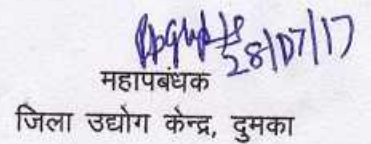 28/07/17
महापबंधक
जिला उद्योग केन्द्र, दुमका